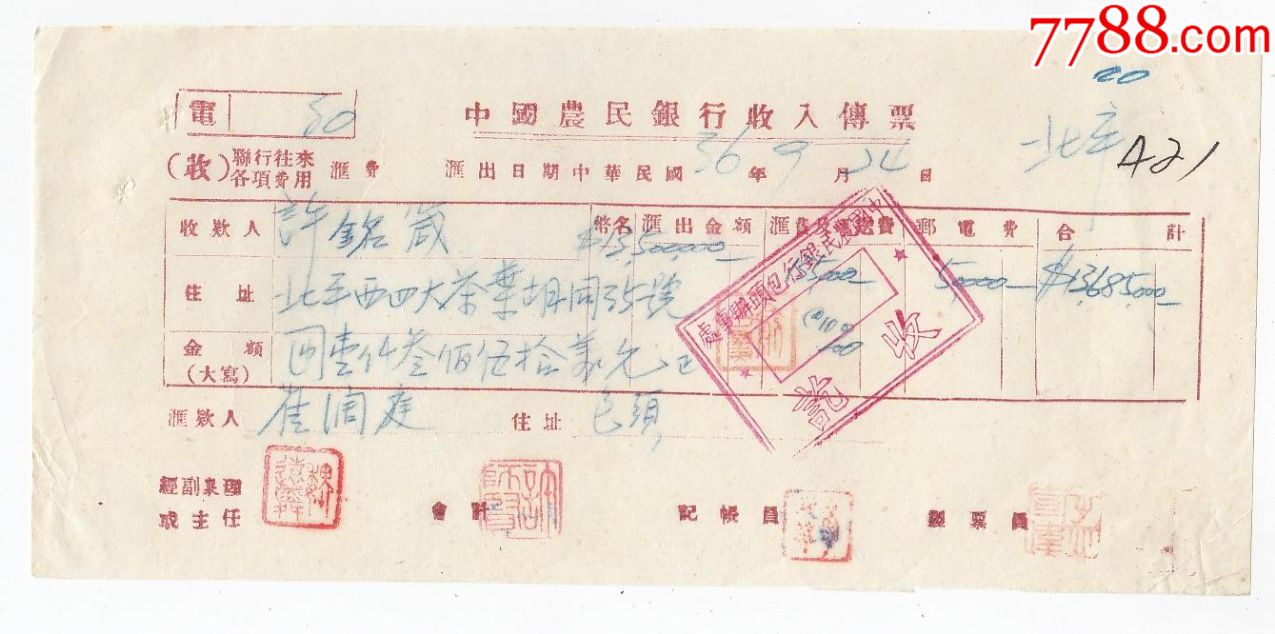 7788.com
20
電 30
中國農民銀行收入傳票
北平 A21
(收) 聯行往來 各項費用 匯費 匯出日期中華民國36年9月24日
收款人 許銘箴 幣名 匯出金額 郵電費 合計
$13,500,000— 5000 50,000— $13,685,000—
住址 北平西四大茶葉胡同35號
@10% 00
金額(大寫) 國幣壹仟叁佰伍拾萬元正
中國農民銀行包頭辦事處
收訖
匯款人 崔潤庭 住址 包頭
經副襄理或主任 會計 記帳員 製票員